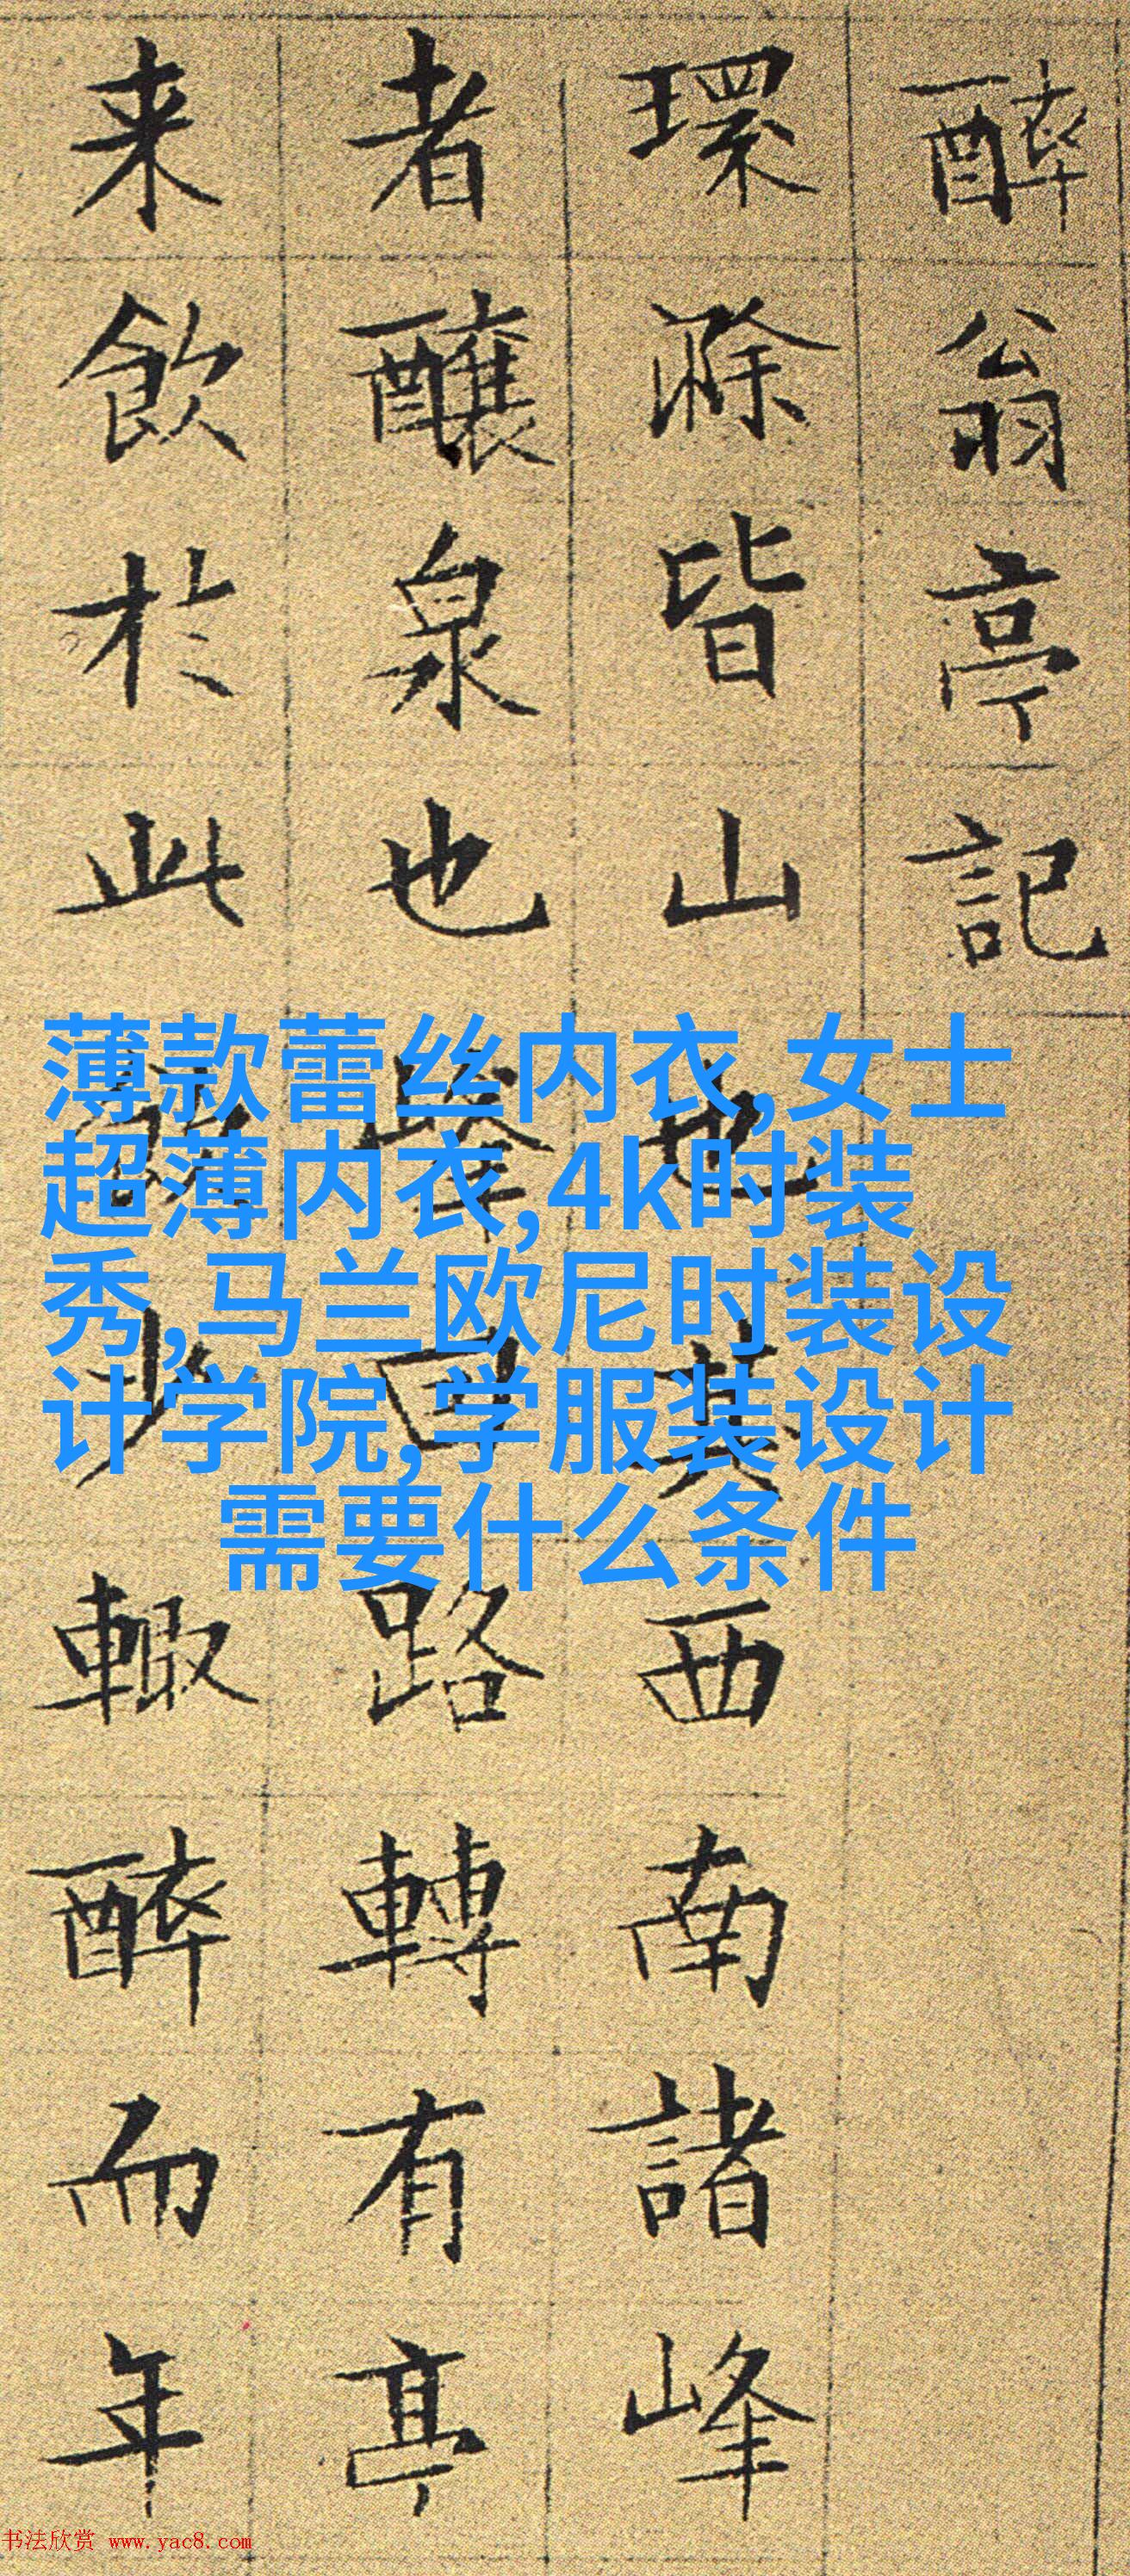 醉翁亭記
環滁皆山也其西南諸峰
者釀泉也峯回路轉有亭
来飲於此飲少輒醉而年
薄款蕾丝内衣,女士
超薄内衣,4k时装
秀,马兰欧尼时装设
计学院,学服装设计
需要什么条件
书法欣赏 www.yac8.com